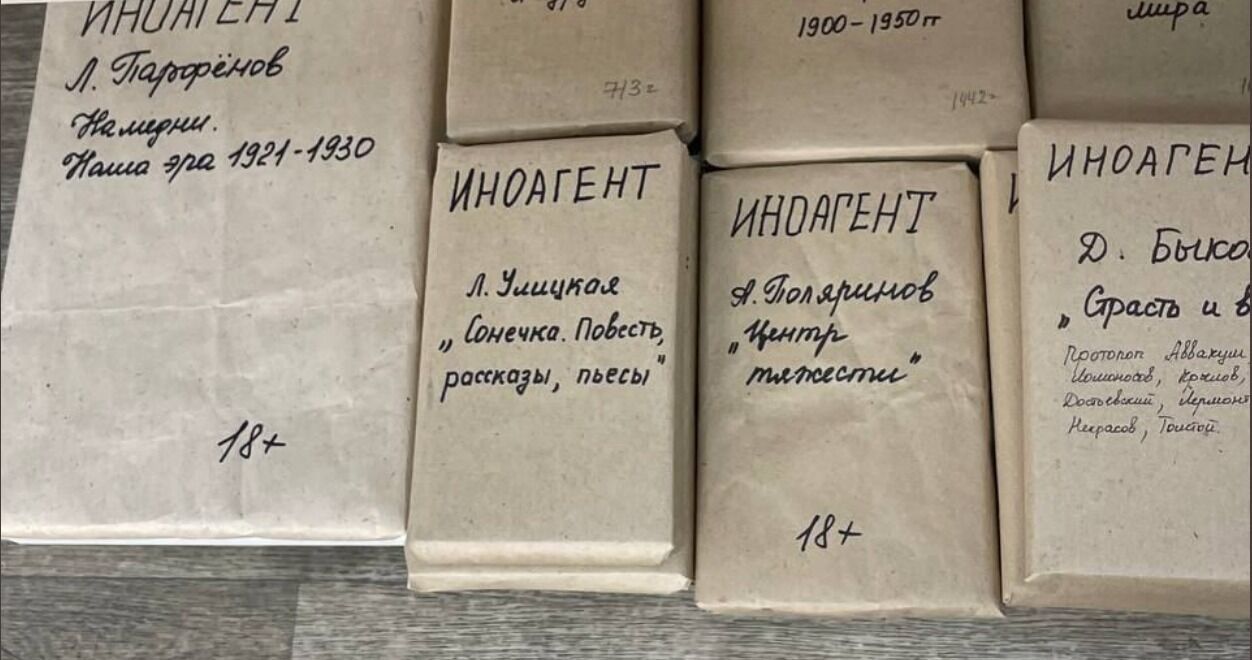 ИНОАГЕНТ
Л. Парфёнов
Намедни.
Наша эра 1921-1930
18+
713г
1900-1950гг
1442г
мира
ИНОАГЕНТ
Л. Улицкая
„Сонечка. Повесть,
рассказы, пьесы"
ИНОАГЕНТ
А. Поляринов
„Центр
тяжести"
18+
ИНОАГЕН
Д. Быко
„Страсть и в
Протопоп Аввакум
Ломоносов, Крылов,
Достоевский, Лермонт
Некрасов, Толстой.